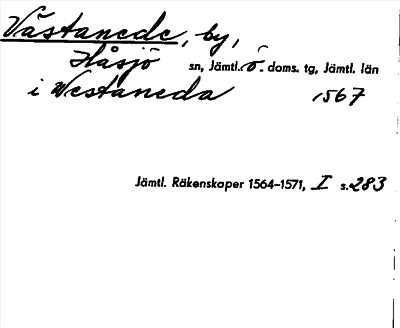 Västanede, by,
Håsjö sn, Jämtl. ö. doms. tg, Jämtl. län
i Westaneda 1567
Jämtl. Räkenskaper 1564-1571, I s. 283